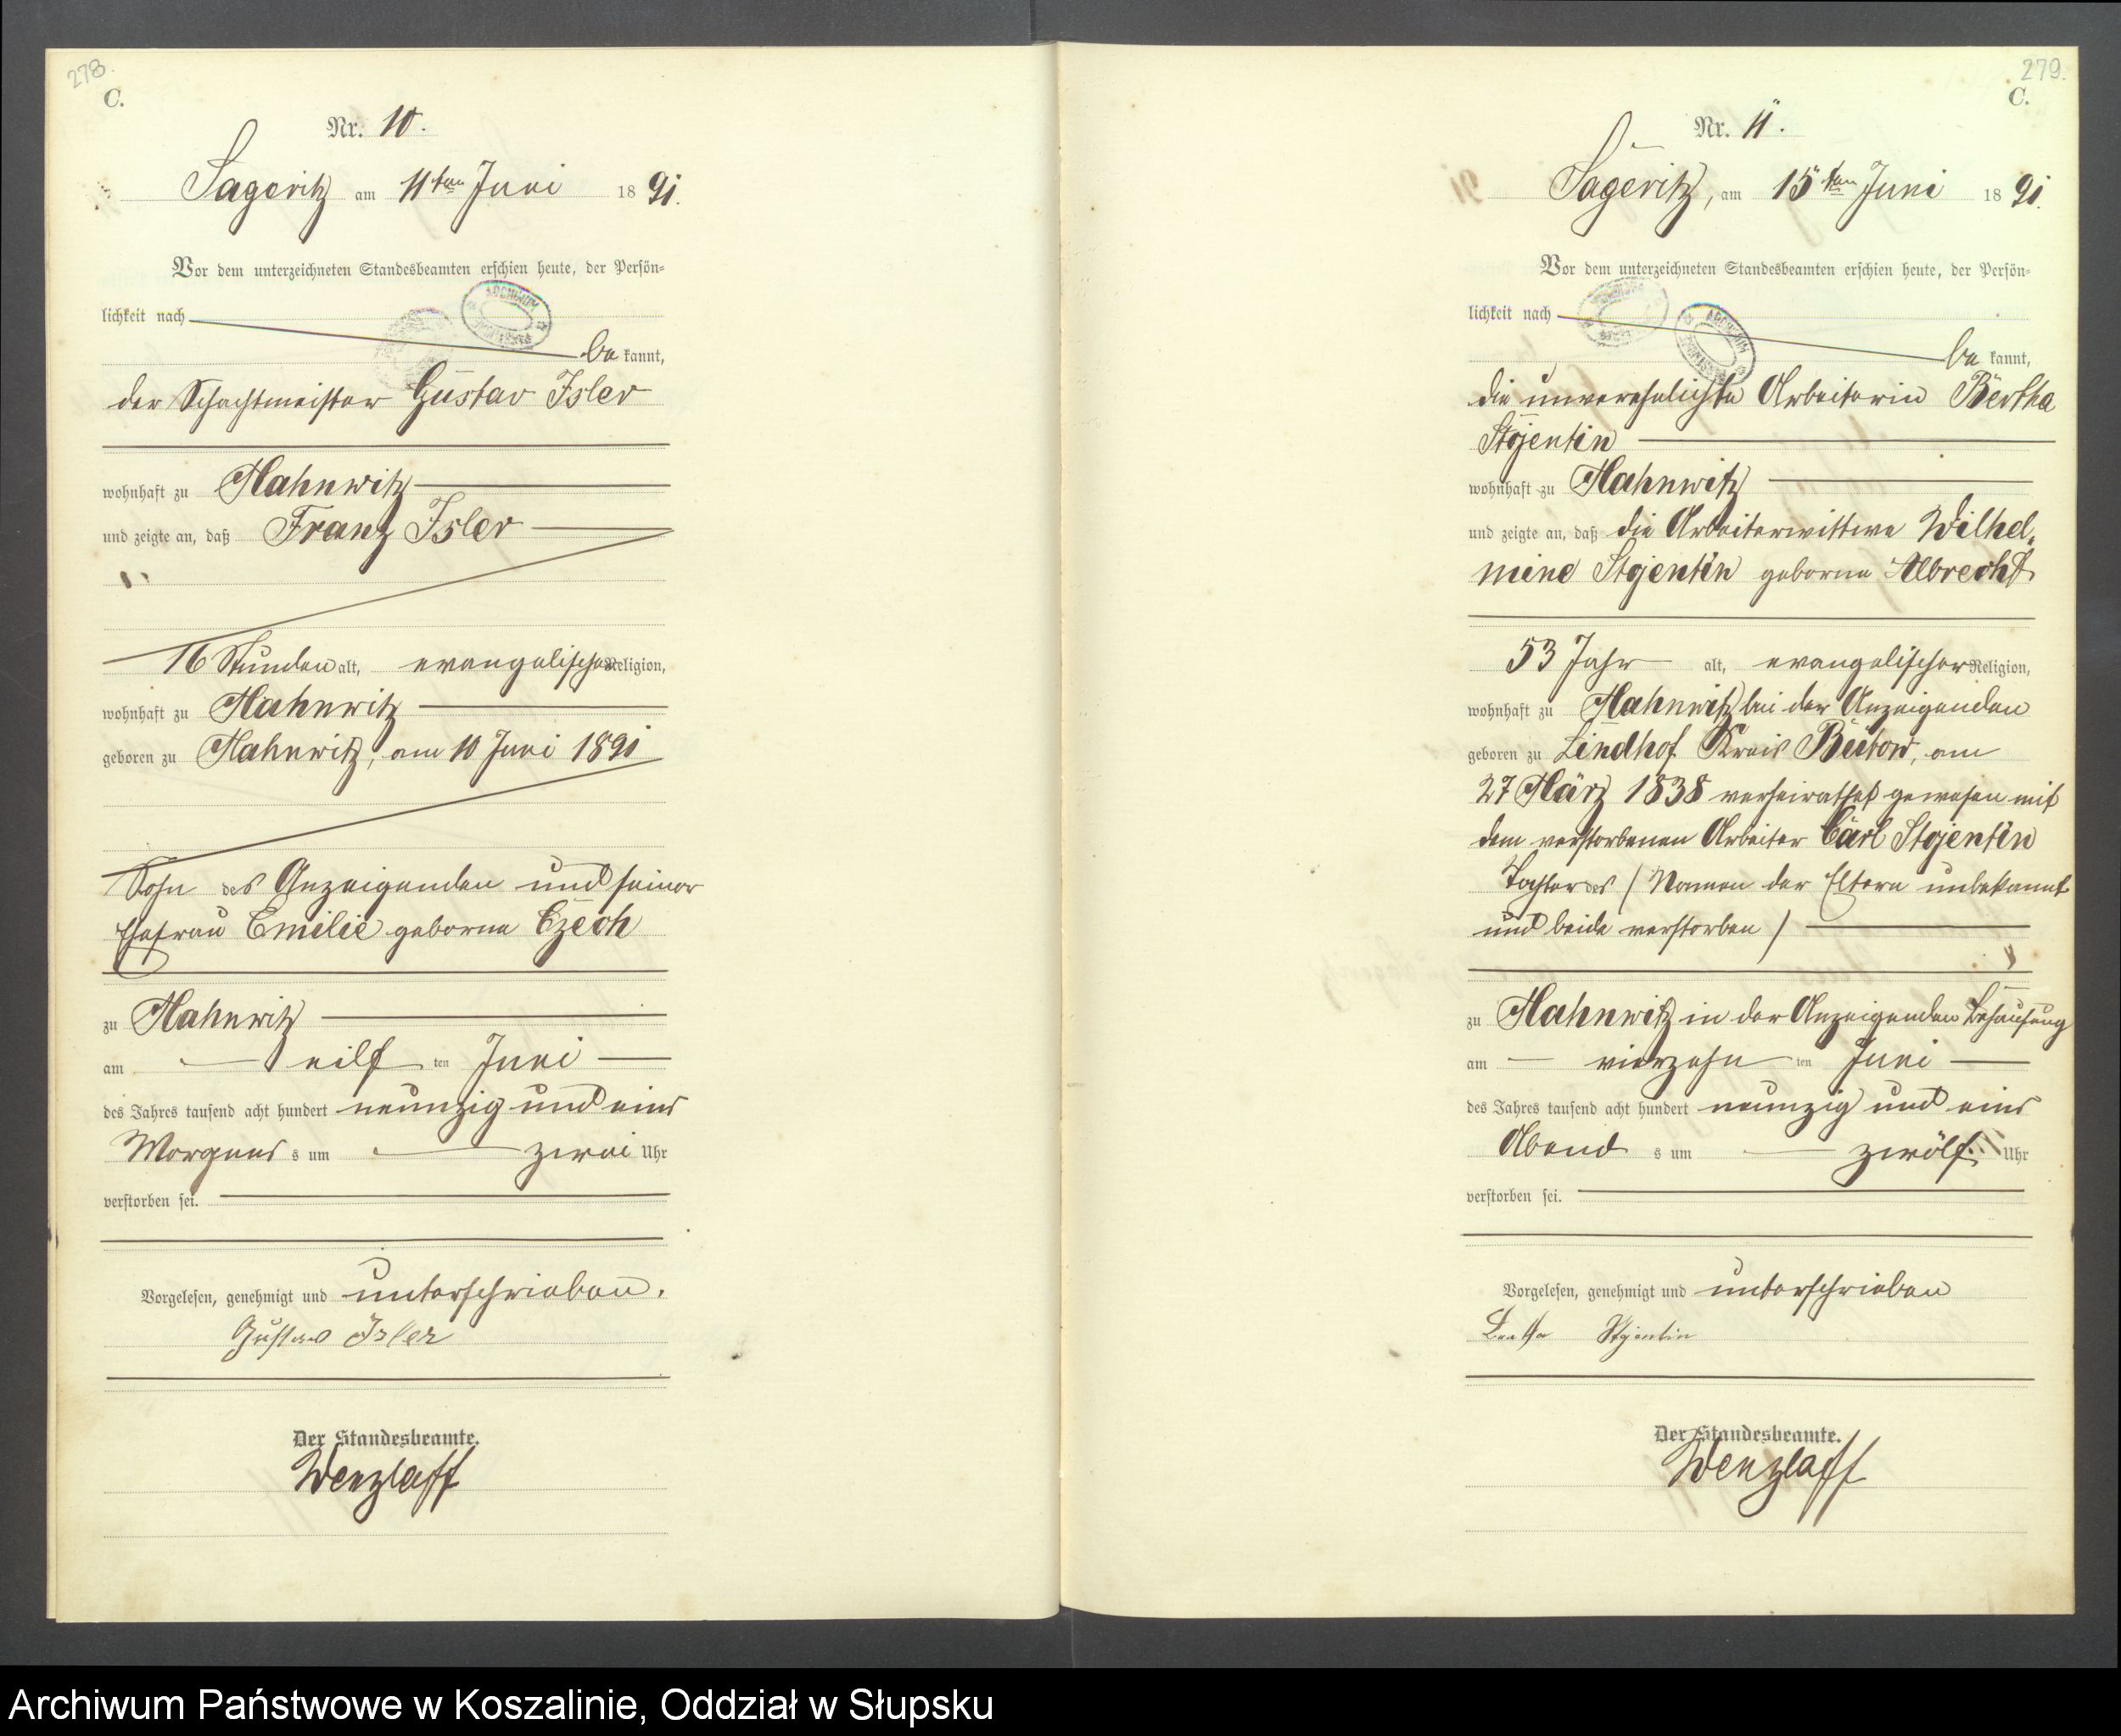 278.
C.
Nr. 10.
Sageritz am 11ten Juni 1891.
Vor dem unterzeichneten Standesbeamten erschien heute, der Persön=
lichkeit nach
be kannt,
der Schachtmeister Gustav Isler
wohnhaft zu Mahnwitz
und zeigte an, daß Franz Isler
16 Stunden alt, evangelischer Religion,
wohnhaft zu Mahnwitz
geboren zu Mahnwitz, am 10 Juni 1891
Sohn des Anzeigenden und seiner
Ehefrau Emilie geborne Czech
zu Mahnwitz
am eilf ten Juni
des Jahres tausend acht hundert neunzig und eins
Morgens s um zwei Uhr
verstorben sei.
Vorgelesen, genehmigt und unterschrieben.
Gustav Isler
Der Standesbeamte.
Wenzlaff
279.
C.
Nr. 11.
Sageritz, am 15ten Juni 1891.
Vor dem unterzeichneten Standesbeamten erschien heute, der Persön=
lichkeit nach
be kannt,
die unverehelichte Arbeiterin Bertha
Stojentin
wohnhaft zu Mahnwitz
und zeigte an, daß die Arbeiterwittwe Wilhel„
mine Stojentin geborne Albrecht
53 Jahr alt, evangelischer Religion,
wohnhaft zu Mahnwitz bei der Anzeigenden
geboren zu Lindhof Kreis Bütow, am
27 März 1838 verheirathet gewesen mit
dem verstorbenen Arbeiter Carl Stojentin
Tochter des / Namen der Eltern unbekannt
und beide verstorben /
zu Mahnwitz in der Anzeigenden Behausung
am vierzehn ten Juni
des Jahres tausend acht hundert neunzig und eins
Abend s um zwölf Uhr
verstorben sei.
Vorgelesen, genehmigt und unterschrieben
Bertha Stojentin
Der Standesbeamte.
Wenzlaff
Archiwum Państwowe w Koszalinie, Oddział w Słupsku